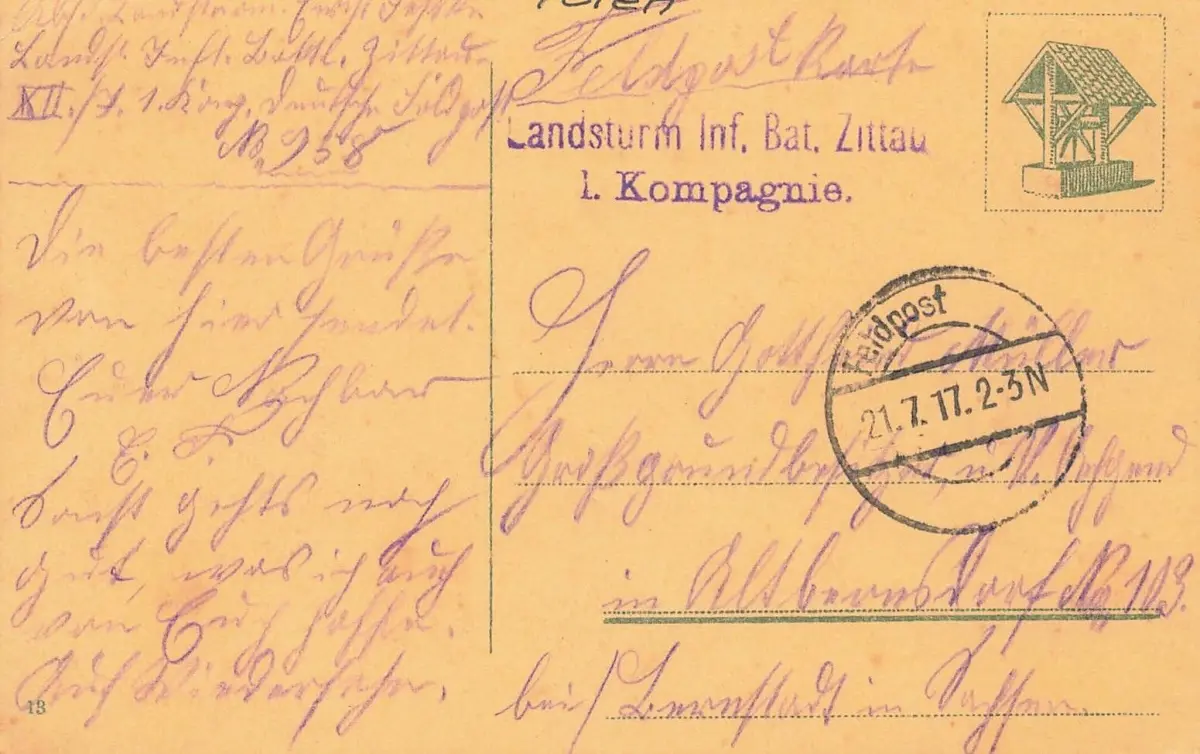 Abs. Landsturm. Erich
Landst. Inft. Batl. Zittau
XII./7. 1. Komp. Deutsche Feldpost
No. 958
Die besten Grüße
von hier sendet.
Euer Nachbar
E. F.
Sonst gehts noch
gut, was ich auch
von Euch hoffe.
Auf Wiedersehn.
13
Feldpostkarte
Landsturm Inf. Bat. Zittau
1. Kompagnie.
Feldpost
21.7.17. 2-3N
Herrn Gotthard Müller
Großgrundbesitzer, u.
in Altbernsdorf No 113.
bei/Bernstadt in Sachsen.